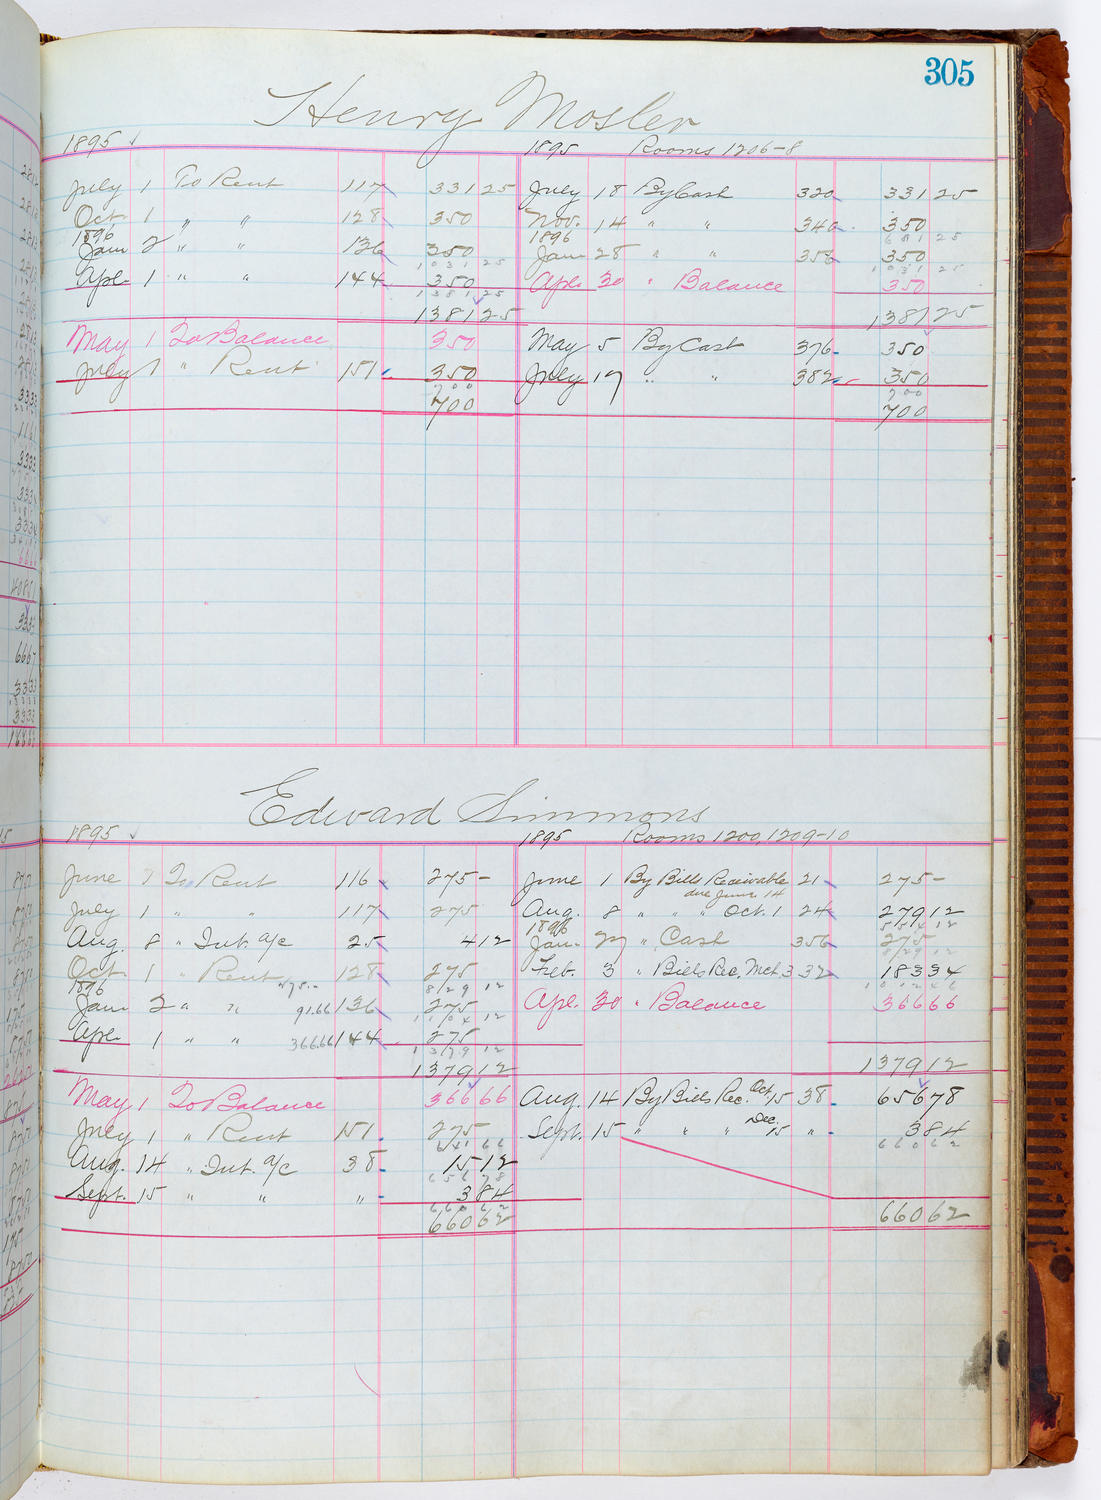 305
Henry Mosler
1895 1895 Rooms 1206-8
July 1 To Rent 117 331 25 July 18 By Cash 320 331 25
Oct. 1 " " 128 350 Nov. 14 " " 340 350
681 25
1896 1896
Jan 2 " " 136 350 Jan 28 " " 356 350
1031 25 1031 25
Apl. 1 " " 144 350 Apl. 30 " Balance 350
1381 25
1381 25 1381 25
May 1 To Balance 350 May 5 By Cash 376 350
July 1 " Rent 151 350 July 17 " " 382 350
700 700
700 700
Edward Simmons
1895 1895 Rooms 1200, 1209-10
June 7 To Rent 116 275 - June 1 By Bills Receivable 21 275 -
due June 14
July 1 " " 117 275 Aug. 8 " " " Oct. 1 24 279 12
554 12
1896
Aug. 8 " Int. a/c 25 4 12 Jan. 27 " Cash 356 275
829 12
Oct. 1 " Rent 128 275 Feb. 3 " Bills Rec. Mch 3 32 183 34
1896 829 12 1012 46
Jan 2 " " 91.66 136 275 Apl. 30 " Balance 366 66
1104 12
Apl. 1 " " 366.66 144 275
1379 12
1379 12 1379 12
May 1 To Balance 366 66 Aug. 14 By Bills Rec. Oct. 15 38 656 78
July 1 " Rent 151 275 Sept. 15 " " " Dec. 15 " 3 84
641 66 660 62
Aug. 14 " Int. a/c 38 15 12
656 78
Sept. 15 " " " 3 84
660 62
660 62 660 62